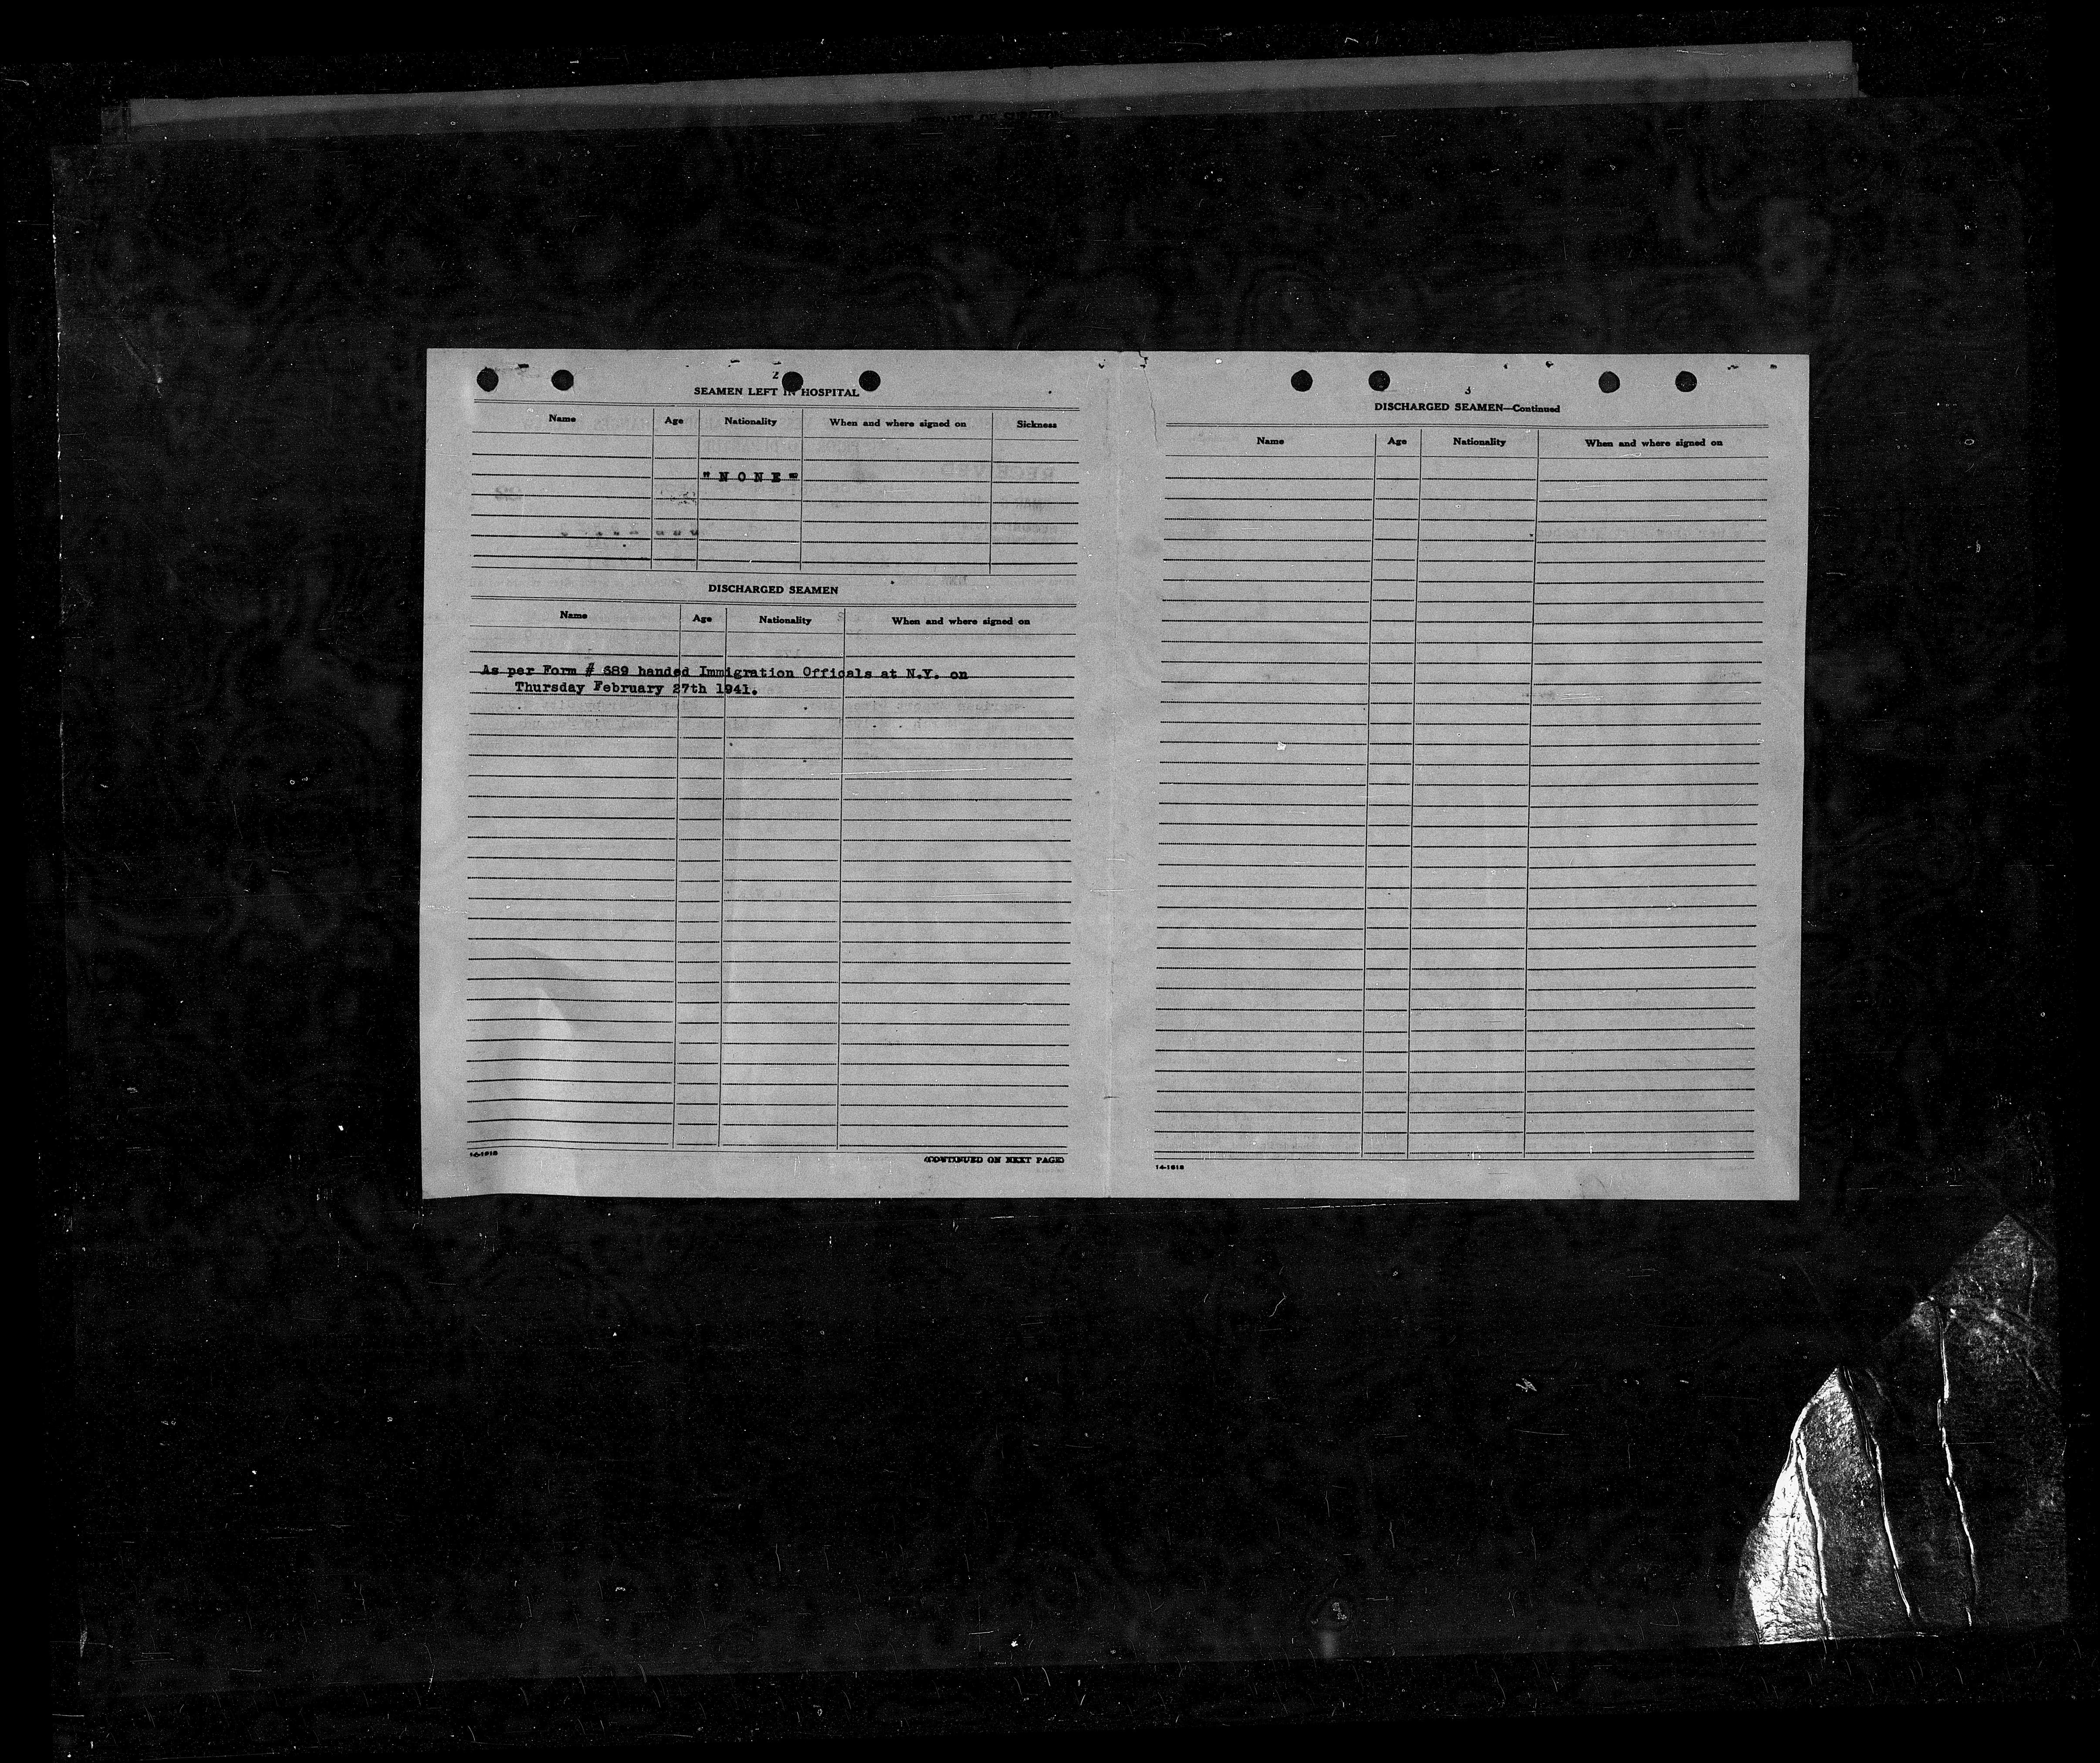 2
SEAMEN LEFT IN HOSPITAL
Name Age Nationality When and where signed on Sickness
"N O N E"
DISCHARGED SEAMEN
Name Age Nationality When and where signed on
As per Form # 689 handed Immigration Officals at N.Y. on
Thursday February 27th 1941.
14-1618
(CONTINUED ON NEXT PAGE)
3
DISCHARGED SEAMEN—Continued
Name Age Nationality When and where signed on
14-1618